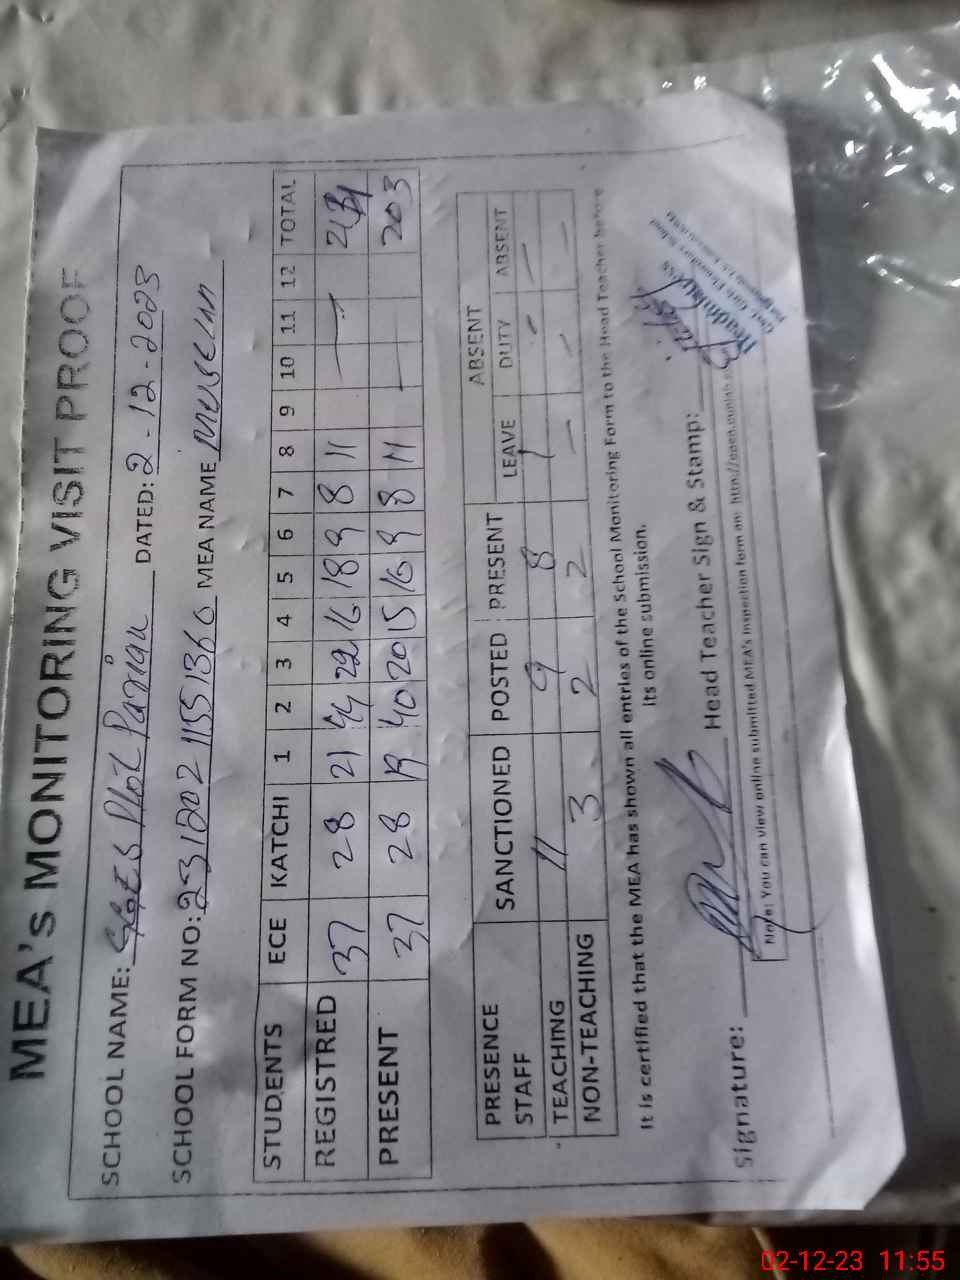 MEA's MONITORING VISIT PROOF
SCHOOL NAME: GGES Plot Parian DATED: 2-12-2023
SCHOOL FORM NO: 2312021155136 MEA NAME
STUDENTS ECE KATCHI 1 2 3 4 5 6 7 8 9 10 11 12 TOTAL
REGISTRED 37 28 21 44 22 16 18 9 8 11
PRESENT 37 28 19 40 20 15 16 9 8 11 203
PRESENCE STAFF SANCTIONED POSTED PRESENT ABSENT
LEAVE DUTY ABSENT
TEACHING 11 9 8 1 - -
NON-TEACHING 3 2 2 - - -
It is certified that the MEA has shown all entries of the School Monitoring Form to the Head Teacher before
its online submission.
Signature: Head Teacher Sign & Stamp:
Headmistress
Govt. Girls Elementary School
Note: You can view online submitted MEA's inspection form on: http://open.punjab
02-12-23 11:55